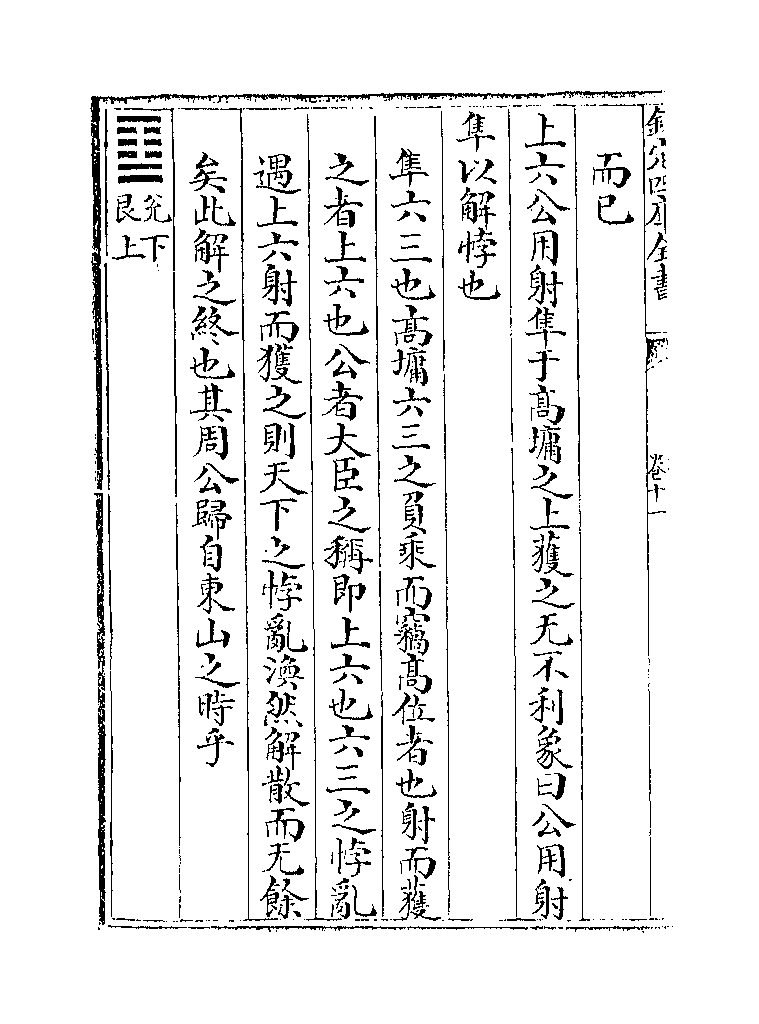 欽定四庫全書
卷十一
而已
上六公用射隼于髙墉之上獲之无不利象曰公用射
隼以解悖也
隼六三也髙墉六三之負乘而竊髙位者也射而獲
之者上六也公者大臣之稱即上六也六三之悖亂
遇上六射而獲之則天下之悖亂渙然解散而无餘
矣此解之終也其周公歸自東山之時乎
兊下
艮上